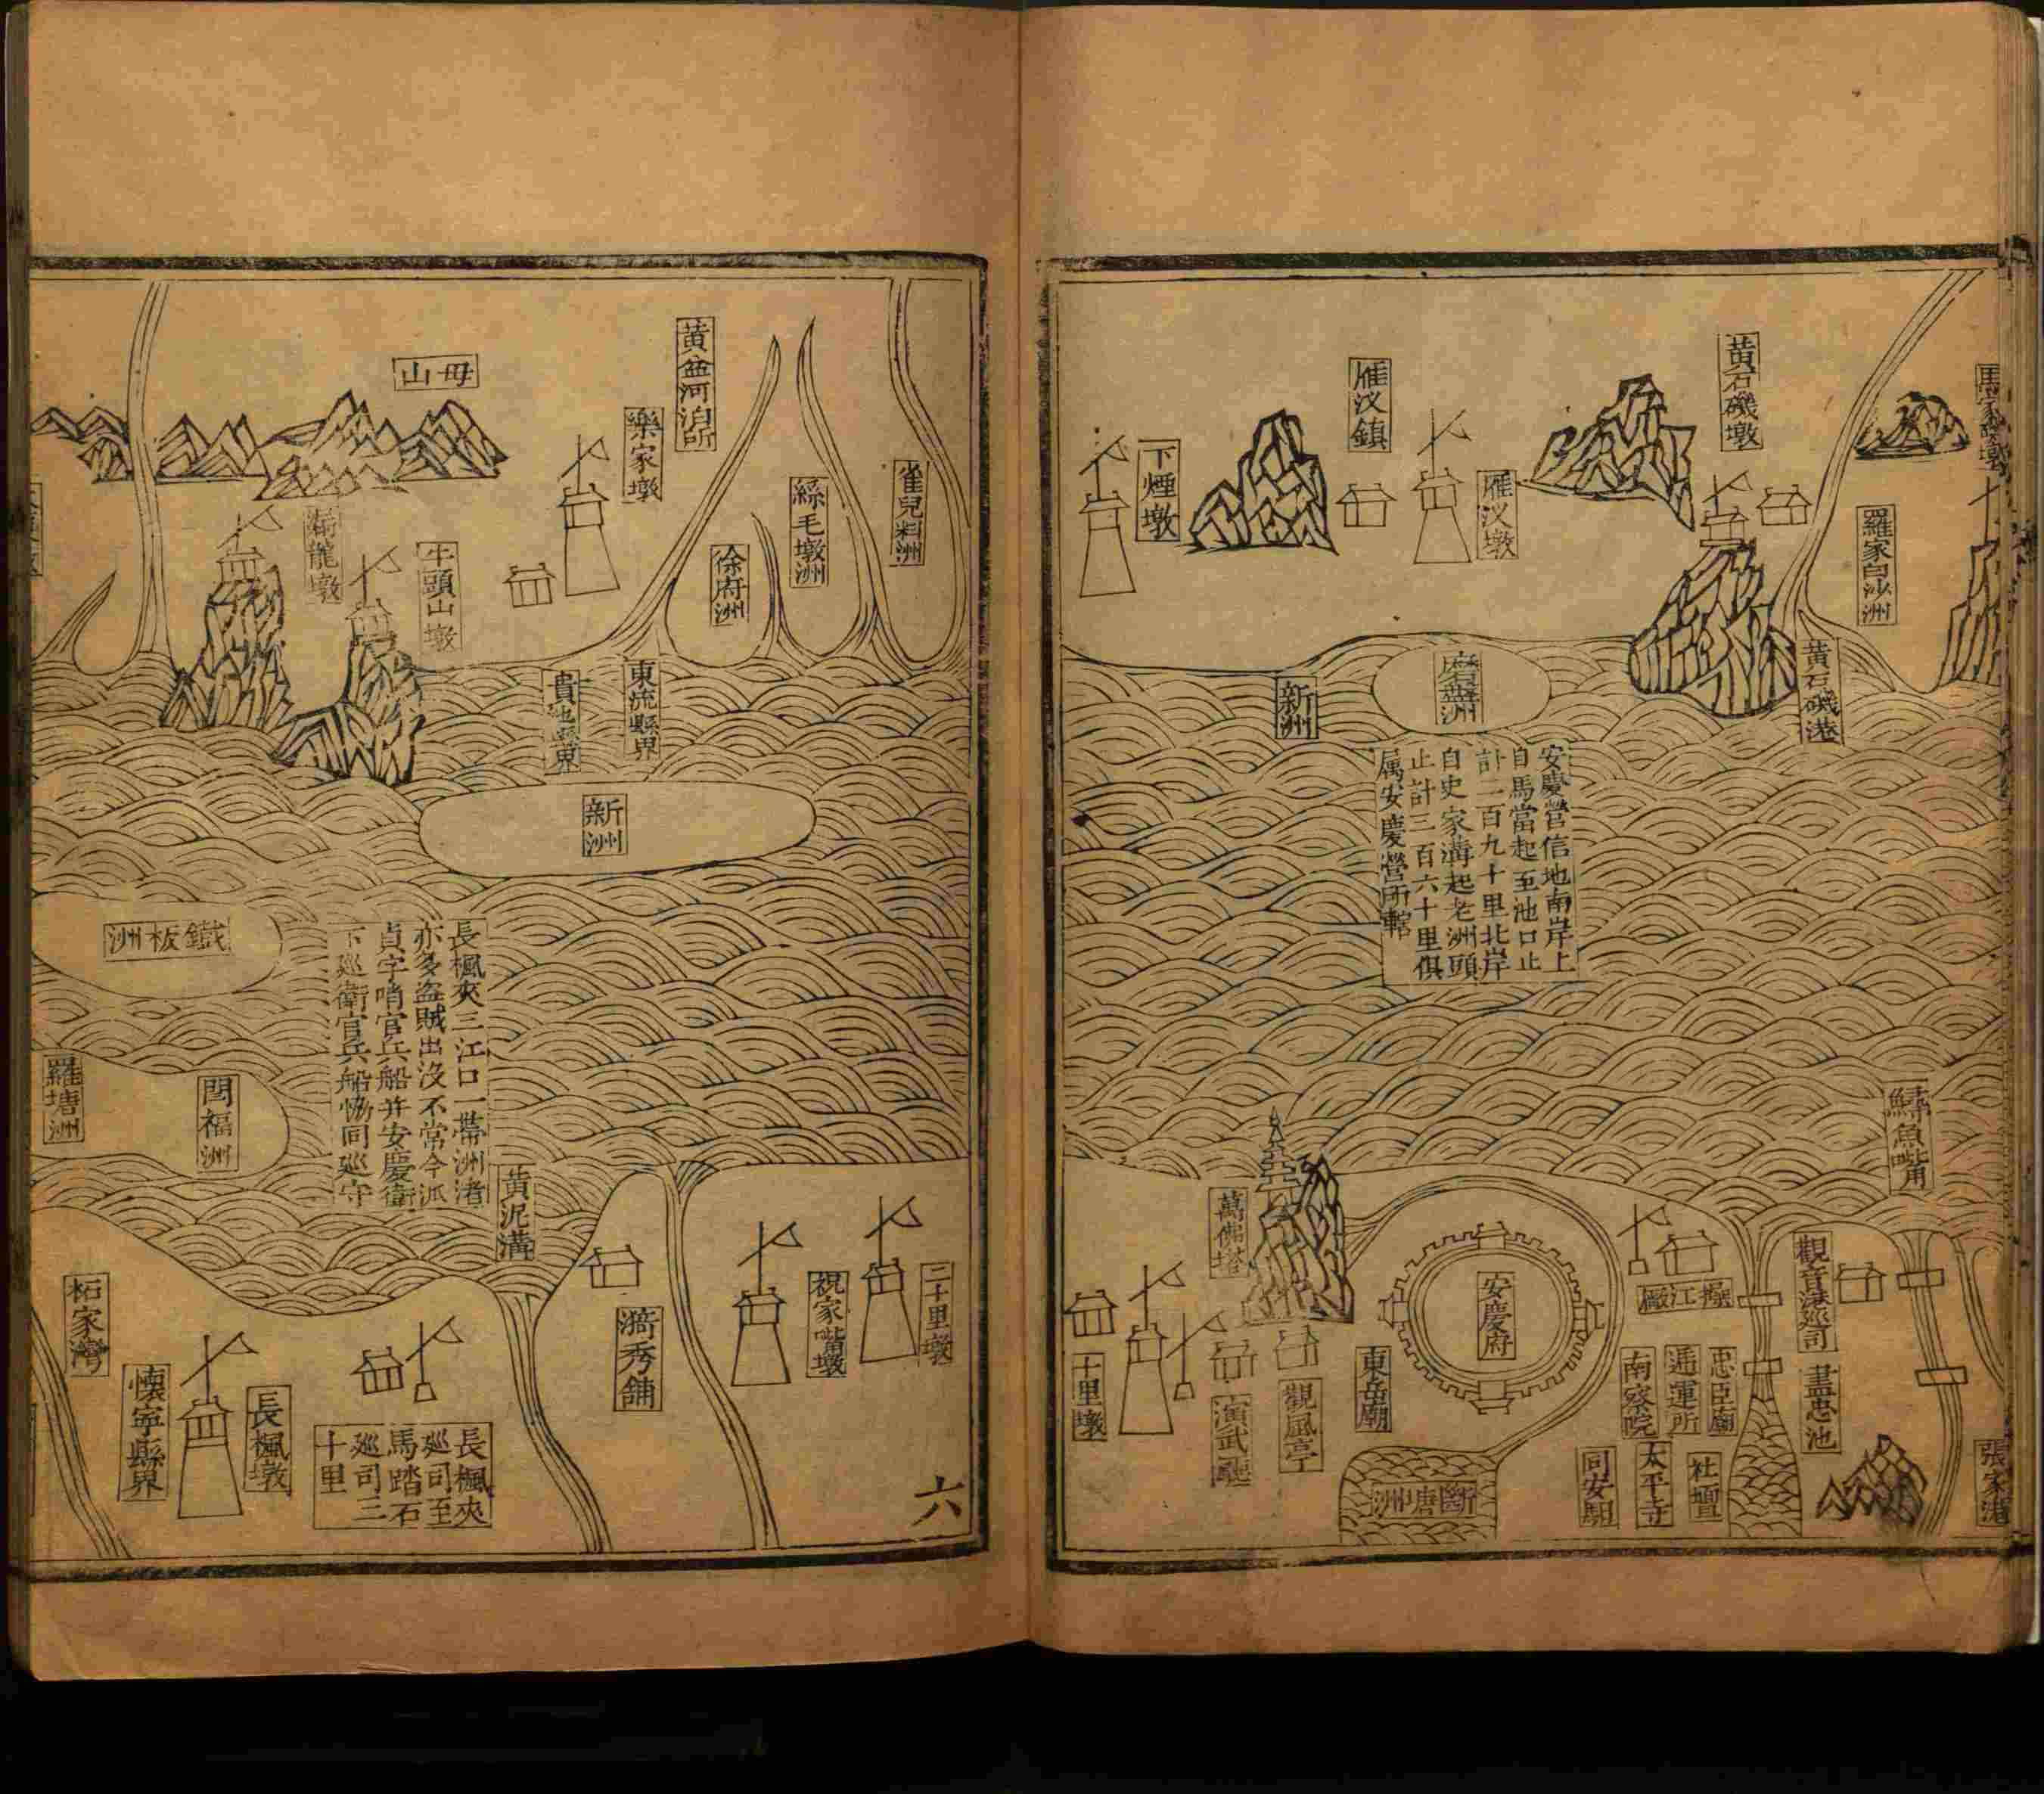 馬家墩
羅家白沙洲
黄石磯墩
黄石磯港
雁汊墩
雁汊鎮
下煙墩
磨盤洲
新洲
安慶營信地南岸上
自馬當起至池口止
計一百九十里北岸
自史家溝起老洲頭
止計三百六十里俱
属安慶營所轄
鱘魚嘴
張家港
觀音港廵司
盡忠池
操江厰
忠臣廟
逓運所
南察院
社壇
太平寺
同安馹
安慶府
東岳廟
斷塘洲
萬佛塔
觀風亭
演武廳
十里墩
雀兒料洲
絲毛墩洲
徐府洲
黄盆河泊所
樂家墩
東流縣界
貴池縣界
毋山
牛頭山墩
龍墩
新洲
鐵板洲
長楓夾三江口一帶洲渚
亦多盗賊出没不常今派
貞字哨官兵船并安慶衛
下廵衛官兵船恊同廵守
閏福洲
羅塘洲
黄泥溝
二十里墩
視家嘴墩
漪秀舗
長楓夾
廵司至
馬踏石
廵司三
十里
長楓墩
懷寧縣界
柘家灣
六